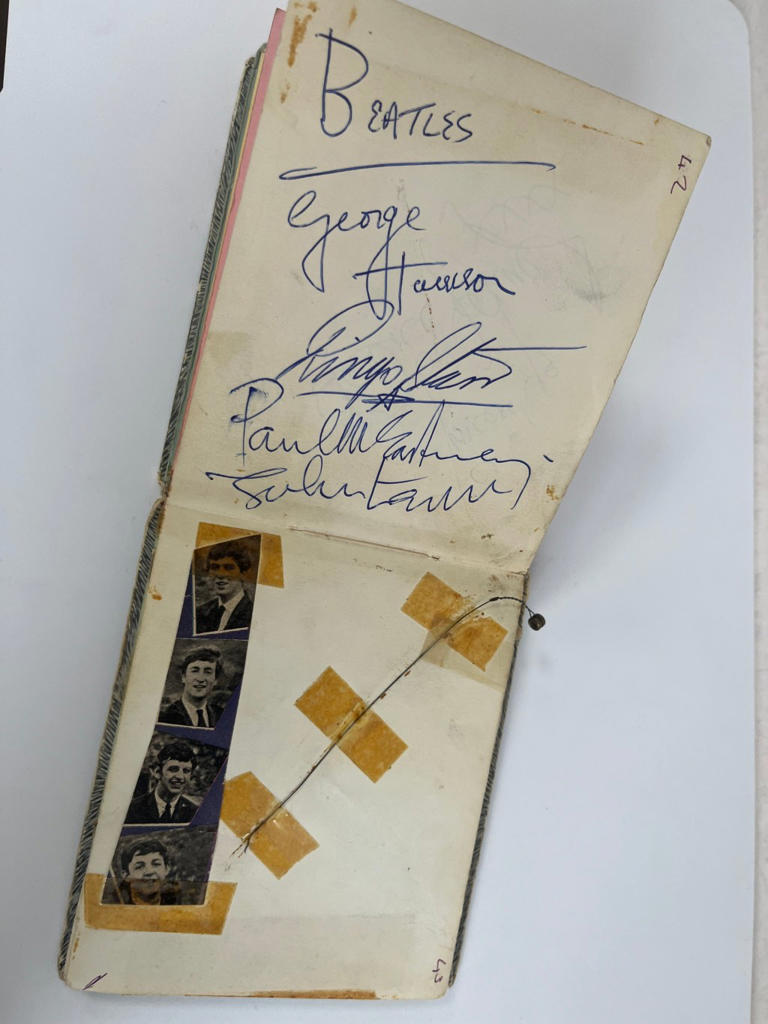 BEATLES
42
George
Harrison
Ringo Starr
Paul McCartney
John Lennon
43